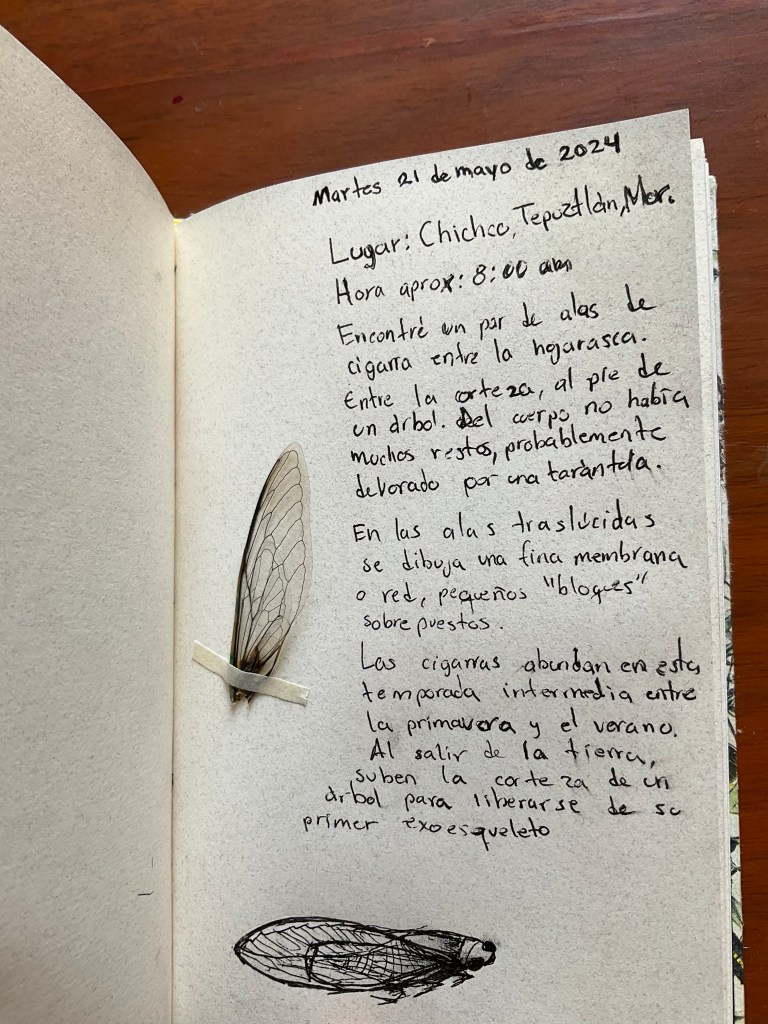 Martes 21 de mayo de 2024
Lugar: Chichco, Tepoztlán, Mor.
Hora aprox: 8:00 am
Encontré un par de alas de
cigarra entre la hojarasca.
Entre la corteza, al pie de
un árbol. Del cuerpo no había
muchos restos, probablemente
devorado por una tarántula.
En las alas traslúcidas
se dibuja una fina membrana
o red, pequeños "bloques"
sobrepuestos.
Las cigarras abundan en esta
temporada intermedia entre
la primavera y el verano.
Al salir de la tierra,
suben la corteza de un
árbol para liberarse de su
primer exoesqueleto